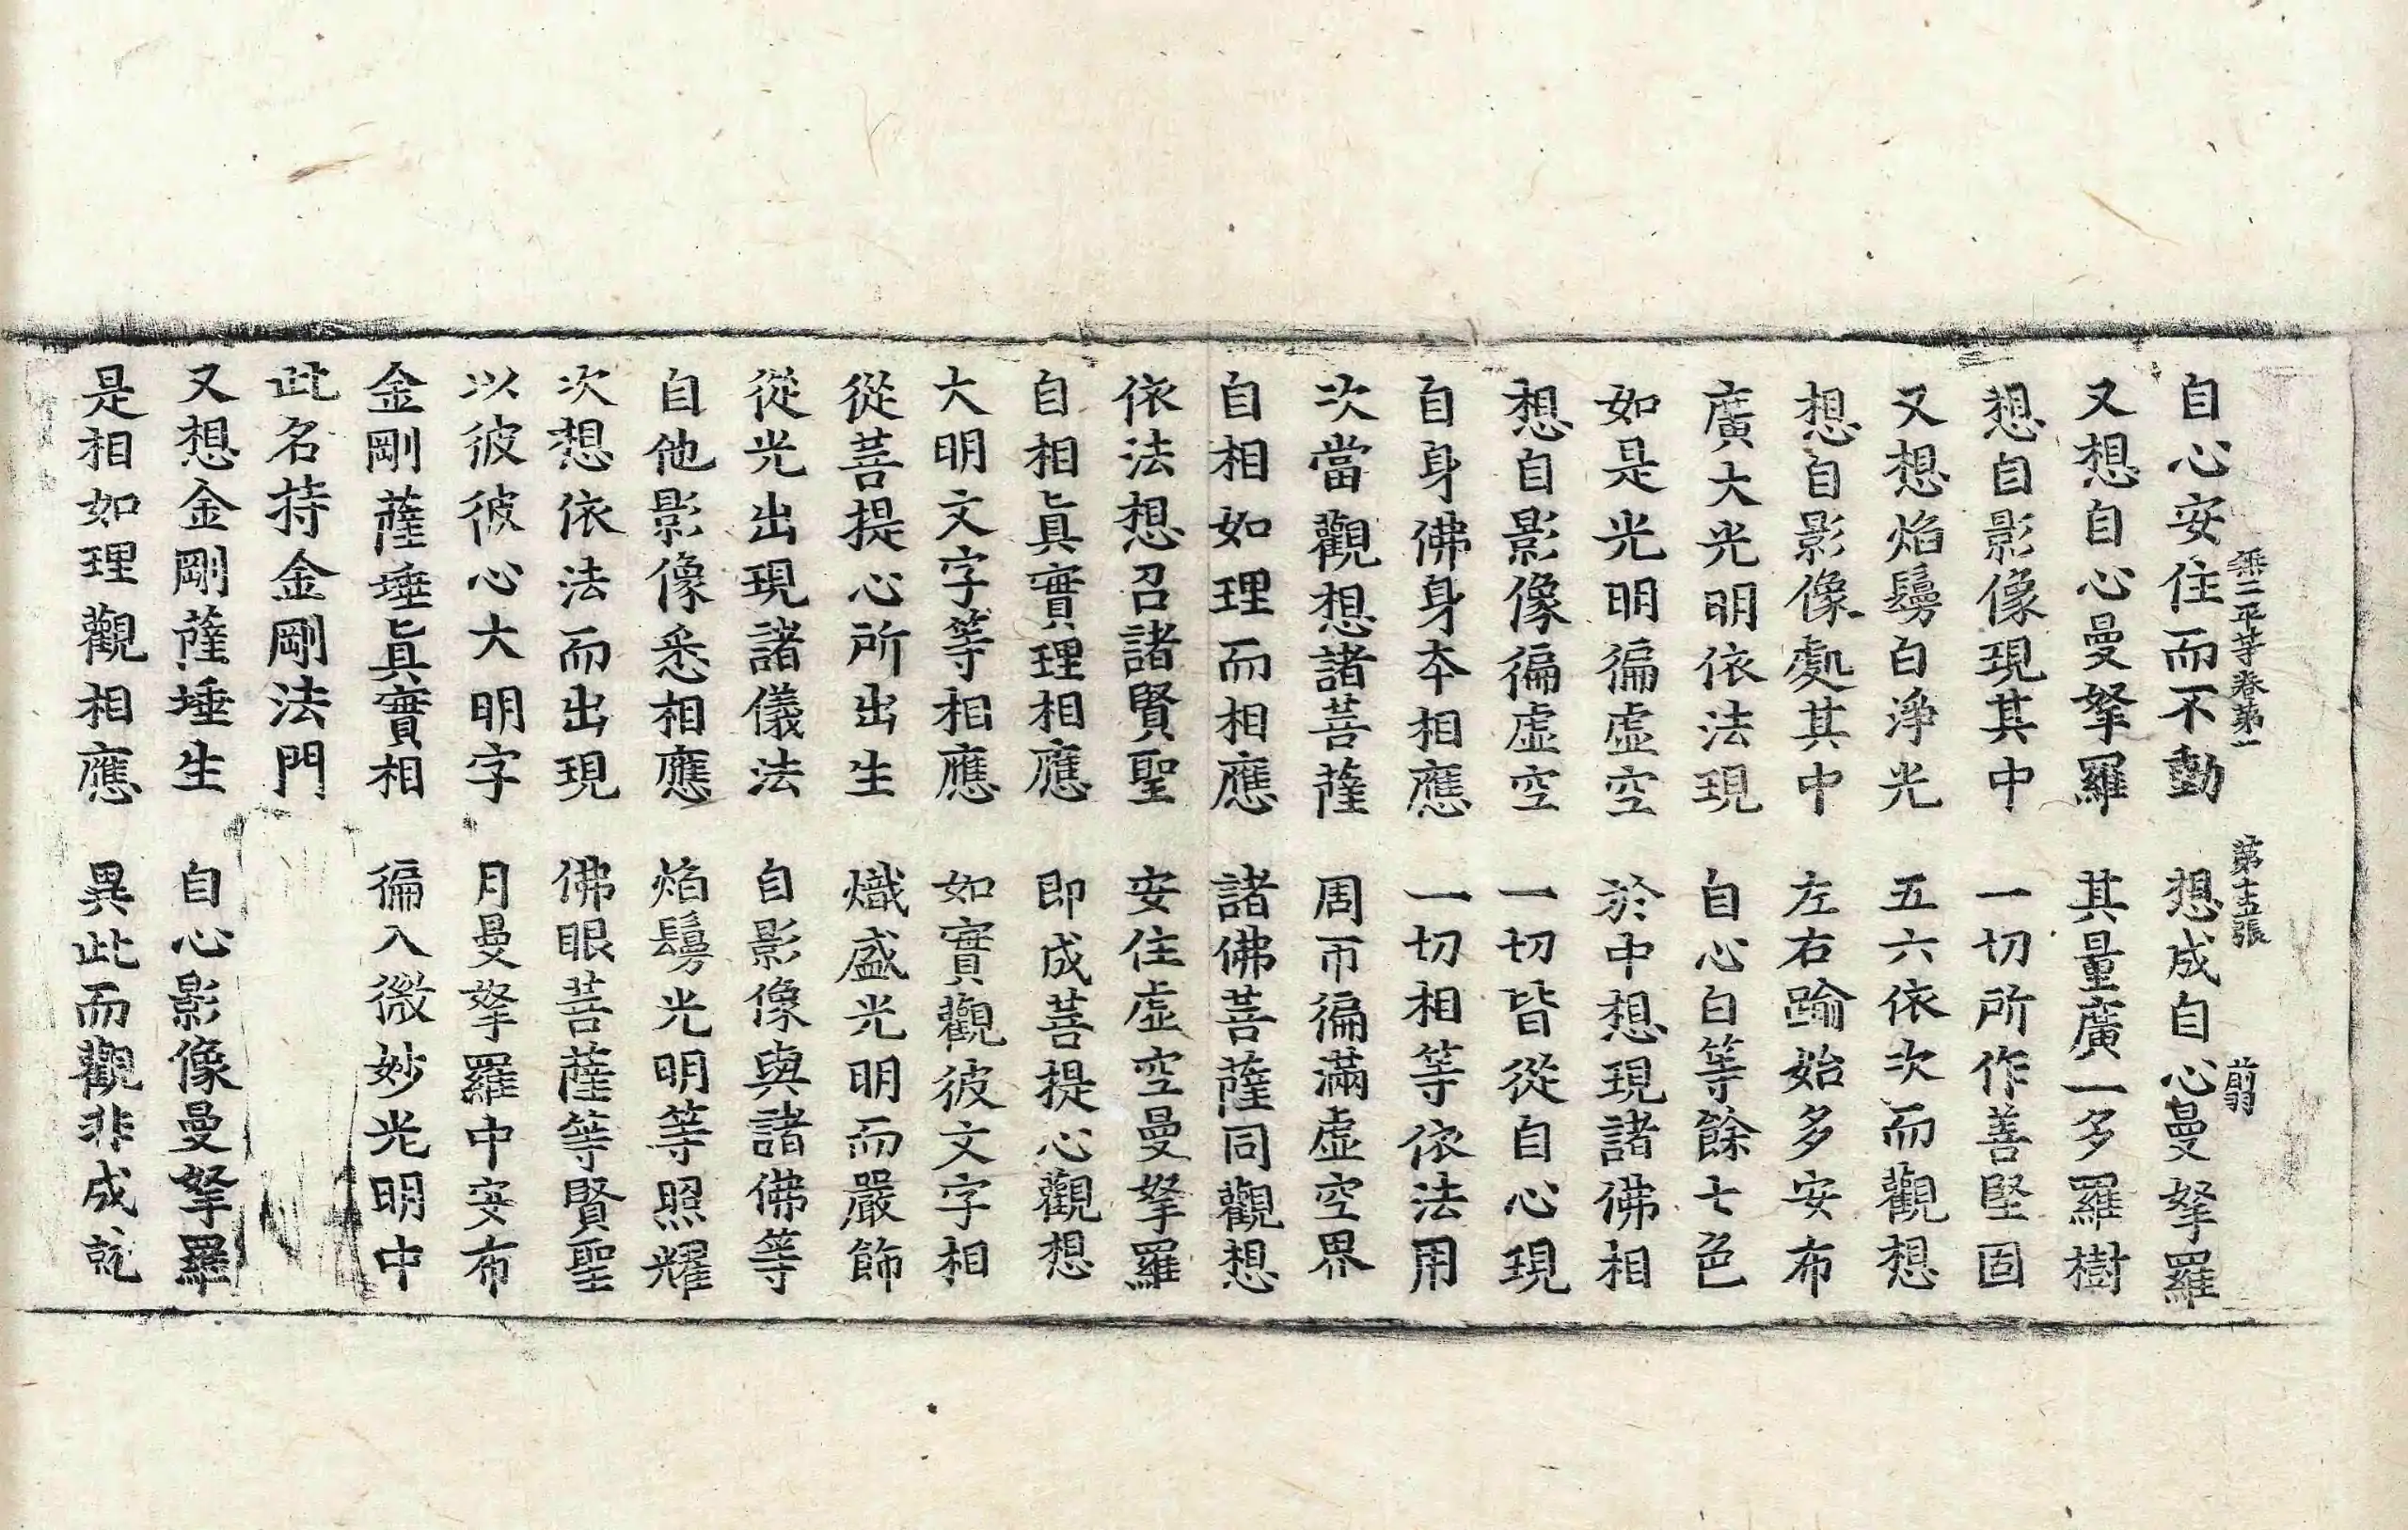 自心安住而不動　想成自心曼拏羅
無二平等卷第一　第十五張　前羽
又想自心曼拏羅　其量廣一多羅樹
想自影像現其中　一切所作善堅固
又想焰鬘白淨光　五六依次而觀想
想自影像處其中　左右踰始多安布
廣大光明依法現　自心白等餘七色
如是光明徧虛空　於中想現諸佛相
想自影像徧虛空　一切皆從自心現
自身佛身本相應　一切相等依法用
次當觀想諸菩薩　周帀徧滿虛空界
自相如理而相應　諸佛菩薩同觀想
依法想召諸賢聖　安住虛空曼拏羅
自相眞實理相應　即成菩提心觀想
大明文字等相應　如實觀彼文字相
從菩提心所出生　熾盛光明而嚴飾
從光出現諸儀法　自影像與諸佛等
自他影像悉相應　焰鬘光明等照耀
次想依法而出現　佛眼菩薩等賢聖
以彼彼心大明字　月曼拏羅中安布
金剛薩埵眞實相　徧入微妙光明中
此名持金剛法門
又想金剛薩埵生　自心影像曼拏羅
是相如理觀相應　異此而觀非成就